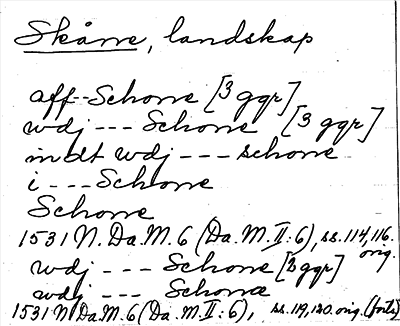 Skåne, landskap
aff--Schone [3 ggr]
wdj --- Schone [3 ggr]
indt wdj --- schone
i --- Schone
Schone
1531 N. Da. M. 6 (Da. M. II: 6), ss. 114, 116. orig.
wdj --- Schone [3 ggr]
wdj --- Schone
1531 N Da. M. 6 (Da. M. II: 6), ss. 119, 120. orig. (forts)